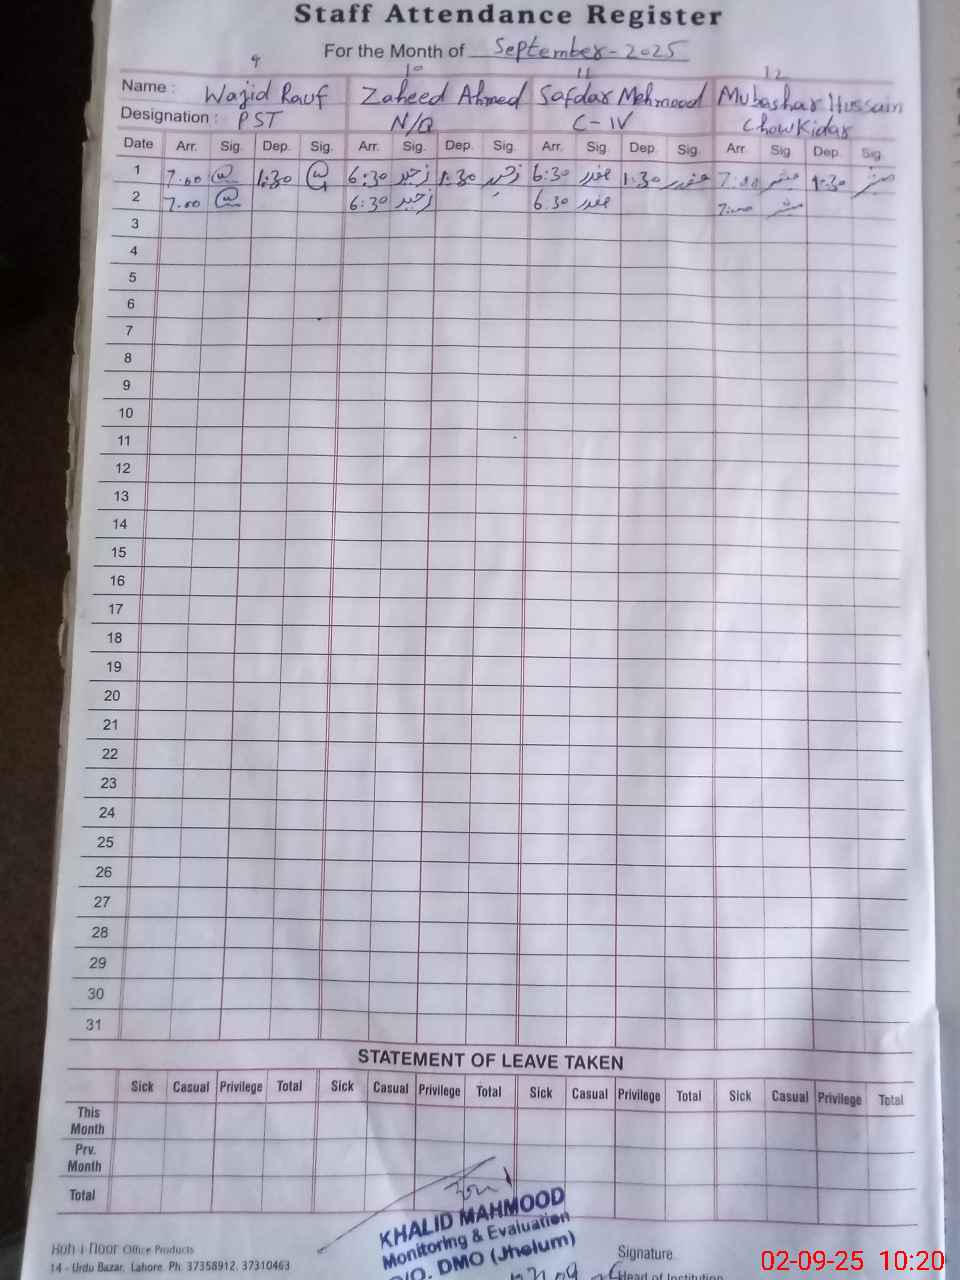 Staff Attendance Register
For the Month of September-2025
9 10 11 12
Name : Wajid Rauf Zaheed Ahmed Safdar Mehmood Mubashar Hussain
Designation : PST N/Q C-IV Chowkidar
Date Arr. Sig. Dep. Sig. Arr. Sig. Dep. Sig. Arr. Sig Dep. Sig. Arr. Sig Dep. Sig
1 7.00 1:30 6:30 1:30 6:30 صفدر 1:30 صفدر 7:00 مبشر 1:30 مبشر
2 7.00 6:30 6:30 صفدر 7:00 مبشر
3
4
5
6
7
8
9
10
11
12
13
14
15
16
17
18
19
20
21
22
23
24
25
26
27
28
29
30
31
STATEMENT OF LEAVE TAKEN
Sick Casual Privilege Total Sick Casual Privilege Total Sick Casual Privilege Total Sick Casual Privilege Total
This
Month
Prv.
Month
Total
KHALID MAHMOOD
Monitoring & Evaluation
DMO (Jhelum)
Koh-i-Noor Office Products
14 - Urdu Bazar, Lahore. Ph: 37358912, 37310463
Signature
Head of Institution
02-09-25 10:20